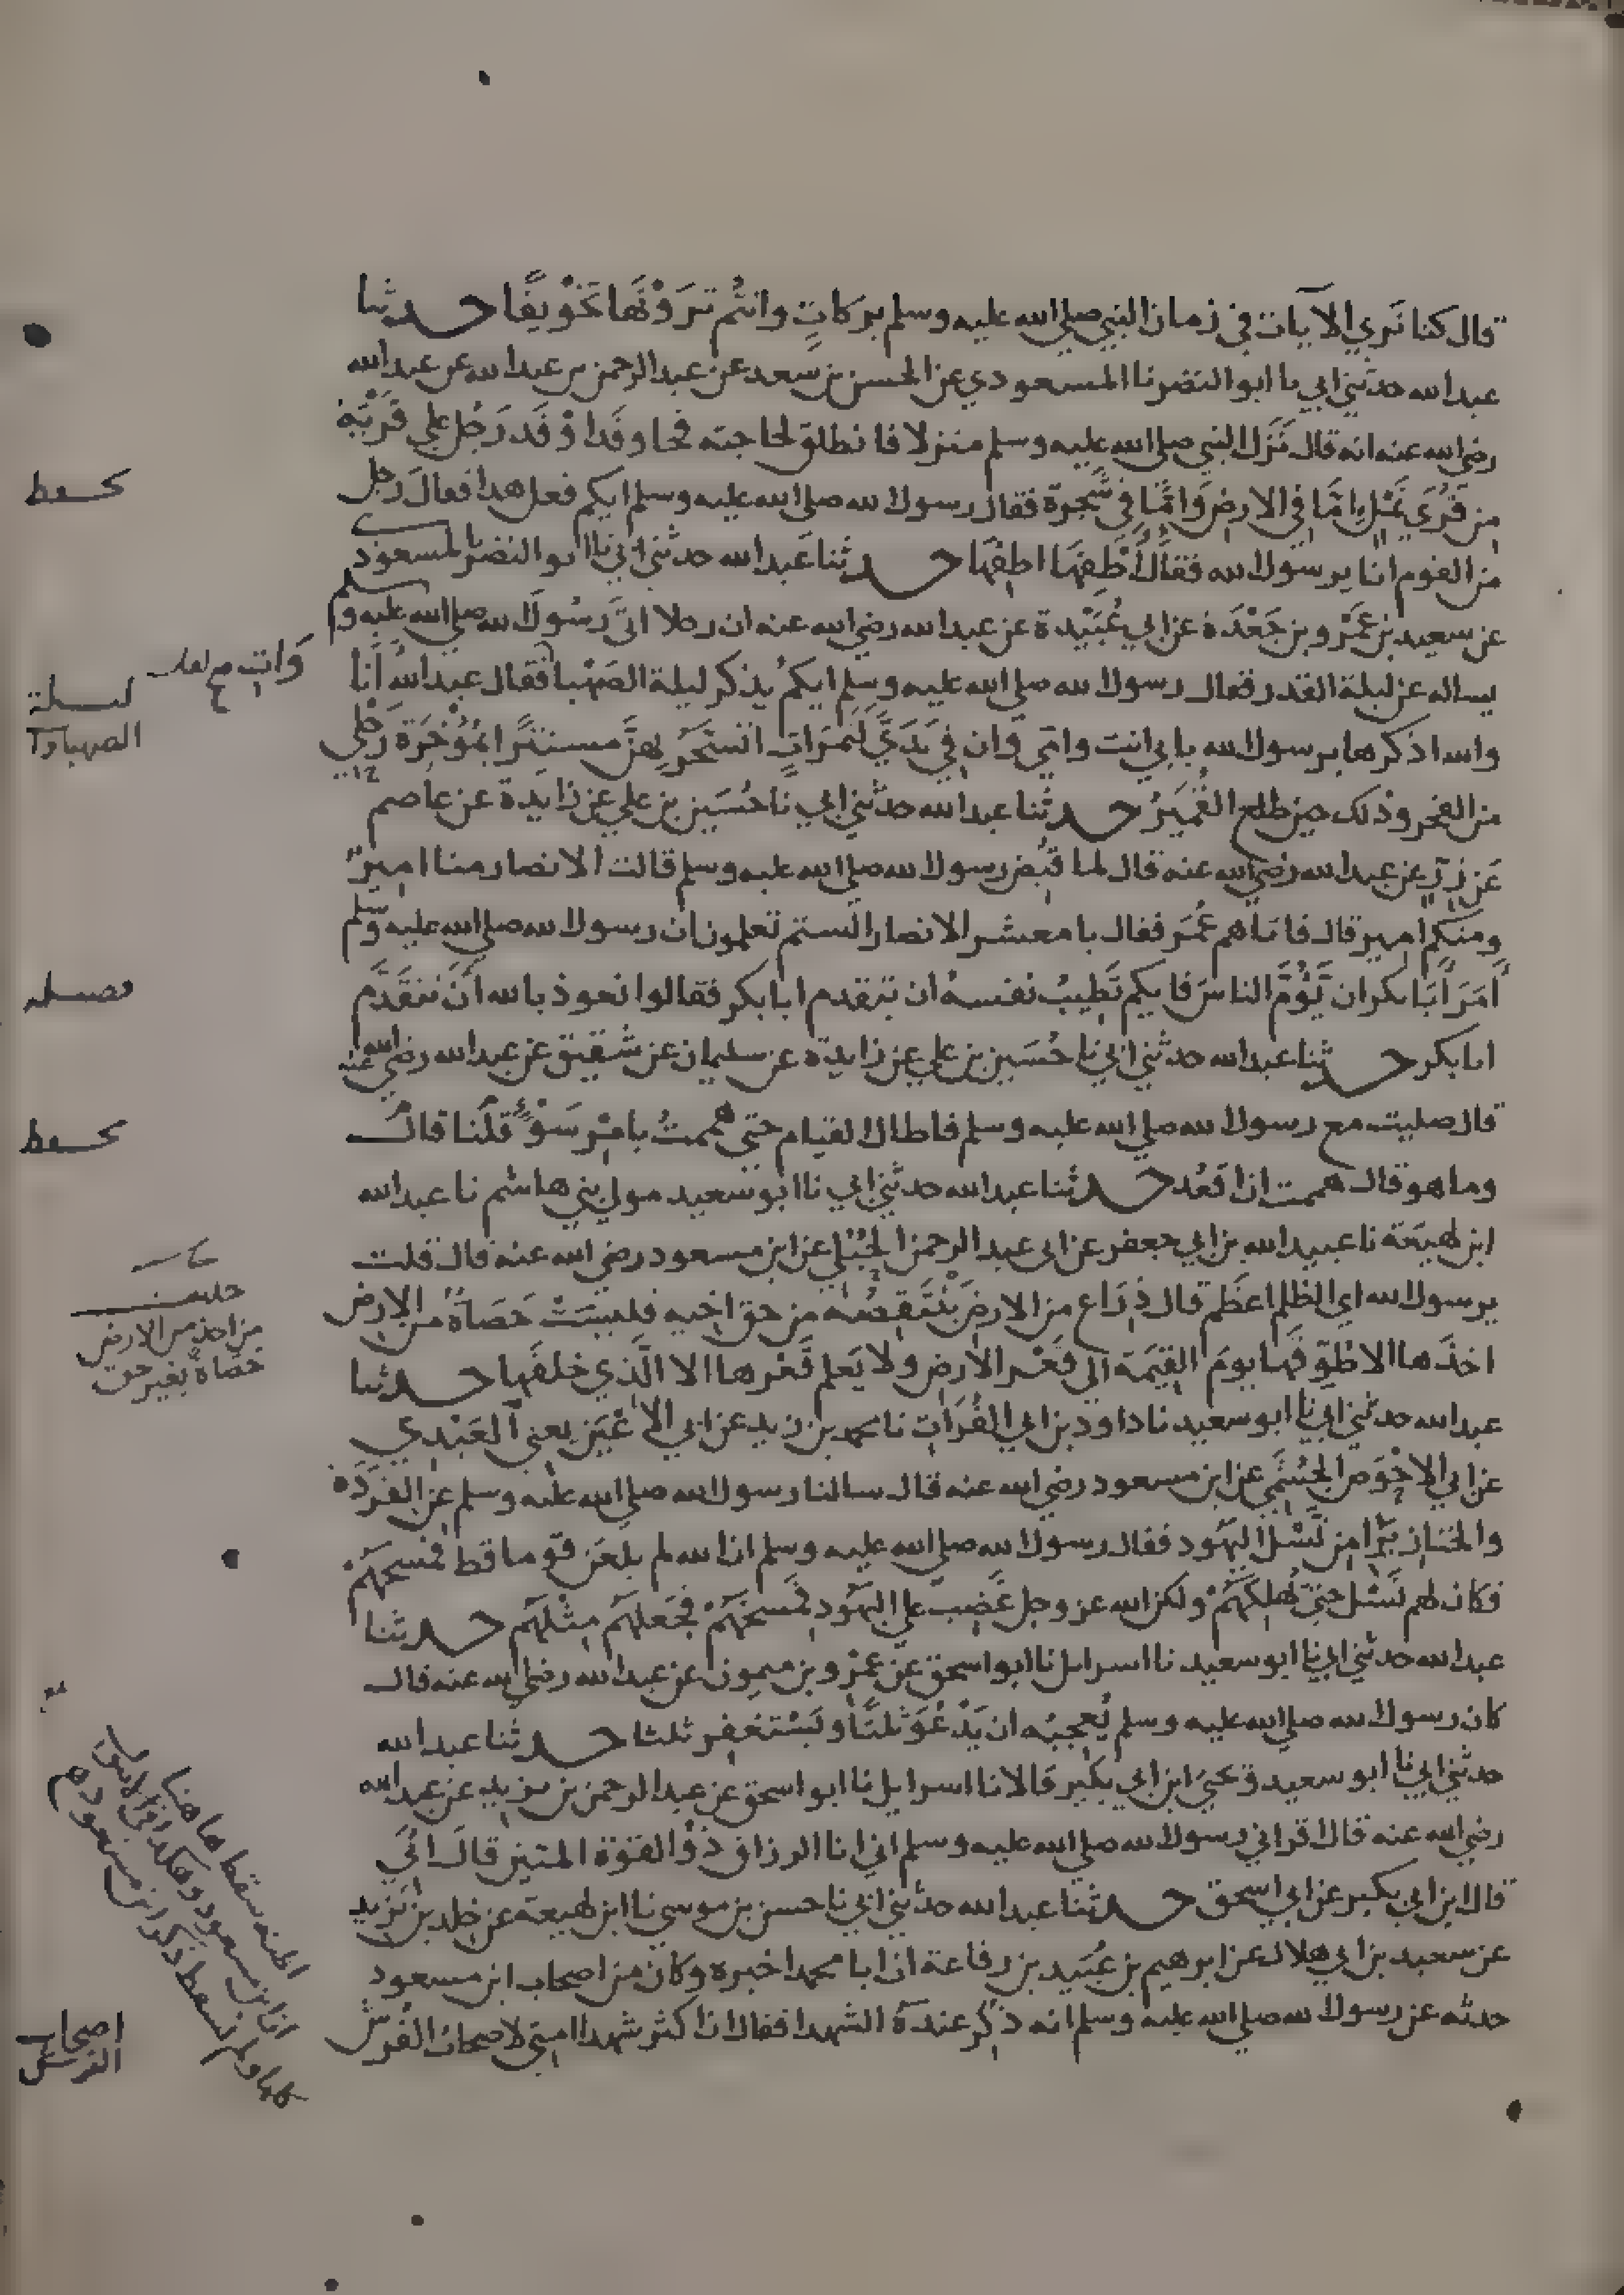 قال كنا نَرى الآيات في زمان النبي صلى الله عليه وسلم بركاتٍ وانتُم تَرَوْنَها تَخْوِيفًا حدثنا
عبد الله حدثني ابي نا ابو النضر نا المسعودي عن الحسن بن سعد عن عبد الرحمن بن عبد الله عن عبد الله
رضي الله عنه انه قال نَزَل النبي صلى الله عليه وسلم منزلا فانطلق لحاجته فجا وقد اوْقَد رَجُل على قَرْيَةِ
من قُرَى نَمْلٍ اِمَّا في الارض وَامَّا في شَجرة فقال رسول الله صلى الله عليه وسلم ايكم فعل هذا فقال رجل
من القوم انا يرسول الله فقال اَطفِهَا اطفِهَا حدثنا عبد الله حدثني ابي نا ابو النضر نا المسعودي
عن سعيد بن عَمْرو بن جَعْدَة عن ابي عُبَيْدة عن عبد الله رضي الله عنه ان رجلا اتَى رَسُولَ الله صلى الله عليه وسلم
يساله عن ليلة القدر فقال رسول الله صلى الله عليه وسلم ايكُم يذكر ليلة الصَهْبا فقال عبد اللهُ اَنا
والله اذكرها يرسول الله بابي انت وامي وَان في يَدَيَّ لَتَمَرَاتٍ اتسَحَّر بِهِنَّ مستترًا بمُؤْخِرَة رَحْلي
من الفجر وذلك حين طلع القُمَيْرُ حدثنا عبد الله حدثني ابي نا حُسَين بن علي عن زايدة عن عاصم
عَن زِرّ عن عبد الله رضي الله عنه قال لما قُبض رسول الله صلى الله عليه وسلم قالت الانصار منا اميرٌ
ومنكم امير قال فاتاهم عُمَر فقال يا معشر الانصار الستم تعلمون ان رسول الله صلى الله عليه وسلم
اَمَرَ اَبَا بكر ان يَّؤُمَّ الناسَ فايكم تَطِيبُ نفسهُ ان يتقدم ابا بكر فقالوا نعوذ بالله اَنْ نتقَدَّم
ابا بكر حدثنا عبد الله حدثني ابي نا حُسَين بن علي عن زايدة عن سليمان عن شَقِيق عن عبد الله رضي الله عنه
قال صليت مع رسول الله صلى الله عليه وسلم فاطال القيام حتى هَممتُ بامْرِ سَوْءٍ قُلْنا قال
وما هو قال هممت ان اقعُد حدثنا عبد الله حدثني ابي نا ابو سعيد مولى بني هاشم نا عبد الله
ابن لهِيعَة نا عبيد الله بن ابي جعفر عن ابي عبد الرحمن الحُبُلي عن ابن مسعود رضي الله عنه قال قلت
يرسول الله اي الظلم اعظَم قال ذِرَاع من الارض يَنْتَقِصُه من حق اخيه فليسَتْ حَصَاةٌ من الارض
اخذَها الا طُوِّقَها يومَ القِيمَة الى قَعْر الارض ولا يَعلم قَعْرها الا الَّذي خلقَها حدثنا
عبد الله حدثني ابي نا ابو سعيد نا داود بن ابي الفُرَاتِ نا محمد بن زيد عن ابي الاَعْيَن يعني العَبْدي
عن ابي الاحْوَص الجُشَمي عن ابن مسعود رضي الله عنه قال سالنا رسول الله صلى الله عليه وسلم عن القِرَدَة
والخنازير اَمِن نَسْل اليهُود فقال رسول الله صلى الله عليه وسلم ان الله لم يلعَن قوما قط فمسخهُمْ
فكان لهم نَسْل حتى يُهلكَهُمْ ولكن الله عز وجل غَضِبَ على اليهُود فمَسَخَهُمْ فجَعلهُم مِثْلَهُم حدثنا
عبد الله حدثني ابي نا ابو سعيد نا اسرايل نا ابو اسحق عن عَمْرو بن ميمون عن عبد الله رضي الله عنه قال
كان رسول الله صلى الله عليه وسلم يُعجبُه ان يَدْعُوَ ثلثًا ويَسْتغفِر ثلثا حدثنا عبد الله
حدثني ابي نا ابو سعيد ويحيَى ابن ابي بكير قالا نا اسرايل نا ابو اسحق عن عبد الرحمن بن يزيد عن عبد الله
رضي الله عنه قال اقراني رسول الله صلى الله عليه وسلم اني انا الرزاق ذُو القوة المتين قال ابي
قال ابن ابي بكير عن ابي اسحق حدثنا عبد الله حدثني ابي نا حسن بن موسى نا ابن لهيعة عن خلد بن يَزيد
عن سعيد بن ابي هلال عن ابرهيم بن عُبَيد بن رفاعة ان ابا محمد اخبره وكان من اصحاب ابن مسعود
حدثه عن رسول الله صلى الله عليه وسلم انه ذُكِر عندهُ الشهدا فقال ان اكثر شهدا امتي لاصحابُ الفُرُش
يحفظ
وَان
ليلة
الصهباوات
فضيلة
يحفظ
حديث
من اخذ من الارض
حَصَاة بغير حق
اظنه سقط هاهنا
اصحاب
الفرش